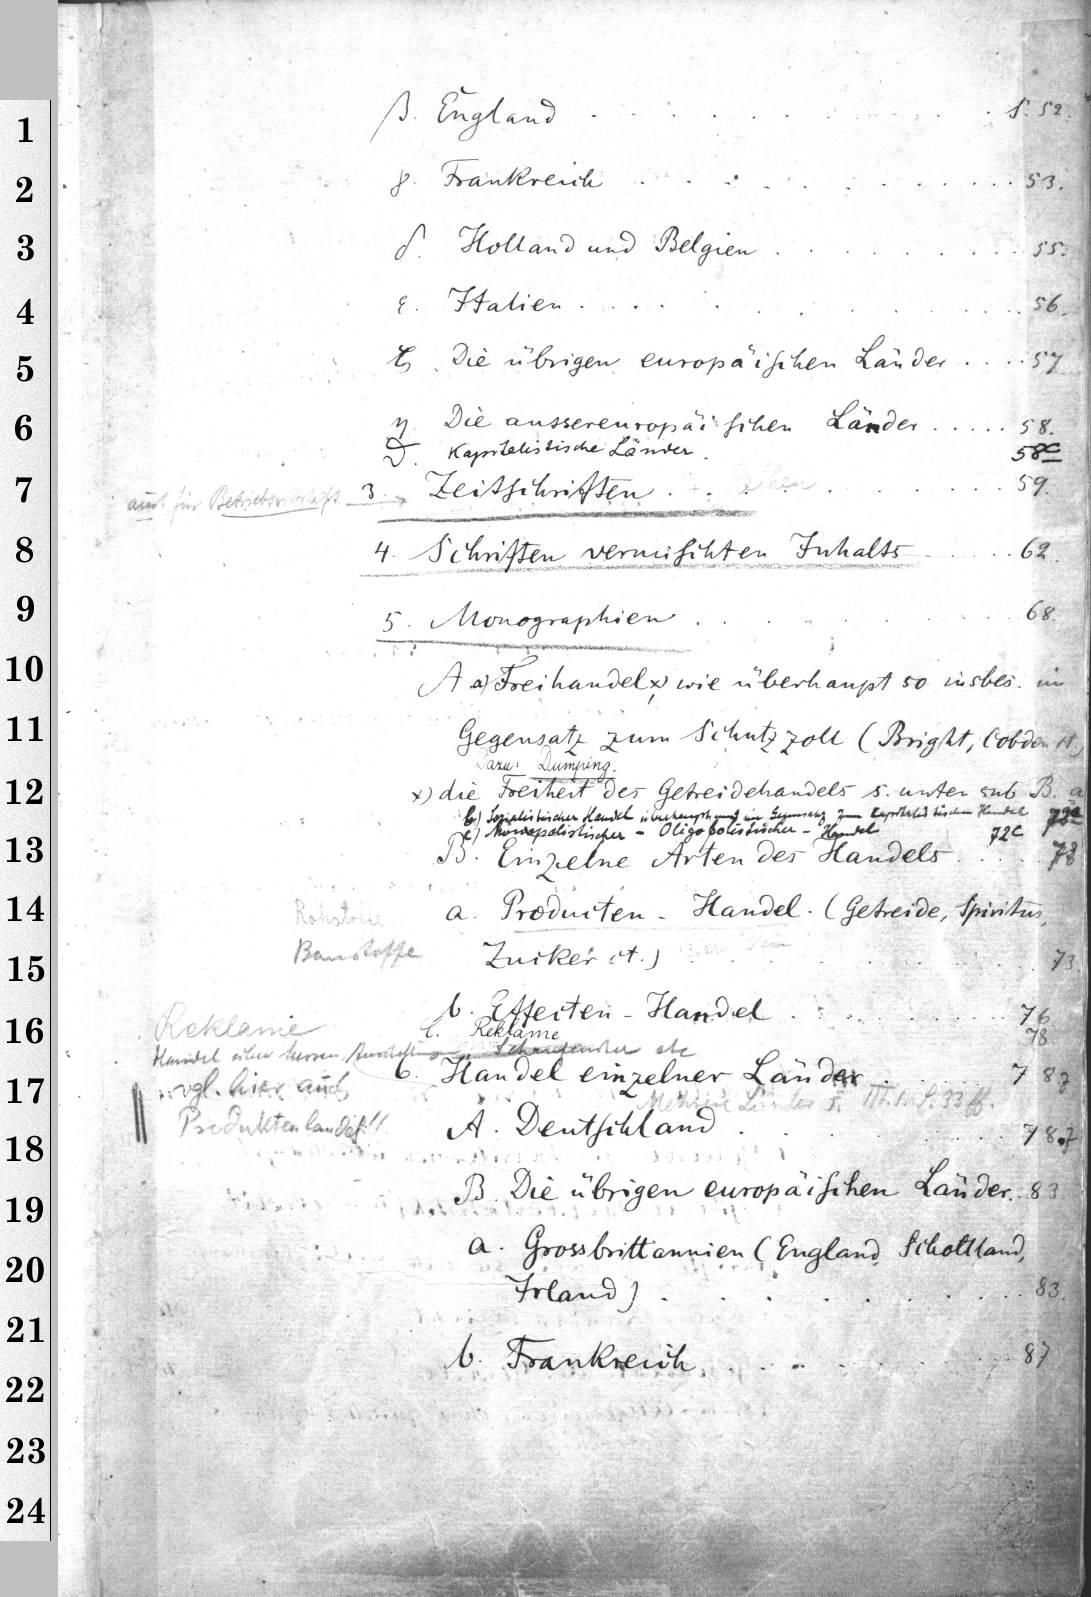 β. England . . . . . . . . . . S. 52.
γ. Frankreich . . . . . . . . . . 53.
δ. Holland und Belgien . . . . . . . 55.
ε. Italien . . . . . . . . . . 56.
ζ. Die übrigen europäischen Länder . . . . 57
η. Die aussereuropäischen Länder . . . . . 58.
ϑ. Kapitalistische Länder . 58c
auch für 3. Zeitschriften . . . . . . . . 59.
4. Schriften vermischten Inhalts . . . . . 62.
5. Monographien . . . . . . . . 68.
A a) Freihandel x) wie überhaupt so insbes. im
Gegensatz zum Schutzzoll (Bright, Cobden
Dazu: Dumping.
x) die Freiheit des Getreidehandels s. unten sub B. a
b) Sozialistischer Handel überhaupt und im Gegensatz zum kapitalistischen Handel 72a
c) Monopolistischer - Oligopolistischer - Handel 72c
B. Einzelne Arten des Handels . . . . 73
Rohstoffe a. Producten - Handel. (Getreide, Spiritus,
Baustoffe Zucker et.) . . . . . . . 73
b. Effecten - Handel . . . . . . 76
Reklame c. Reklame 78
Handel
6. Handel einzelner Länder . . . . . 78
vgl. hier auch Mehrere Länder s. 33 ff.
Produktenhandel!! A. Deutschland . . . . . . 78
B Die übrigen europäischen Länder . . 83
a. Grossbrittannien (England, Schottland,
Irland) . . . . . . . . . 83.
b. Frankreich . . . . . . . . 87
1
2
3
4
5
6
7
8
9
10
11
12
13
14
15
16
17
18
19
20
21
22
23
24